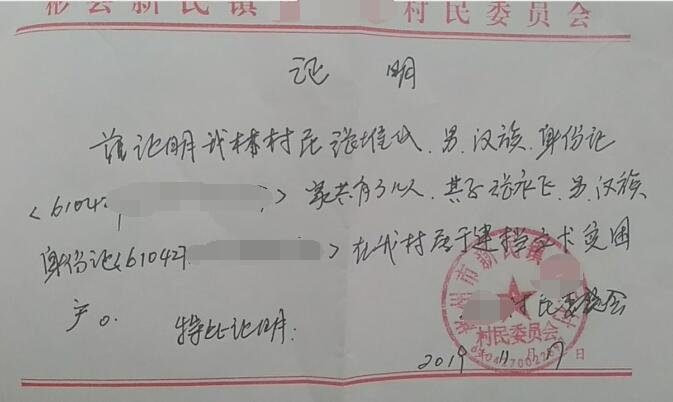 彬县新民镇 村民委员会
证 明
兹证明我村村民 男、汉族、身份证
<6104 > 家共有3口人、其子 永飞、男、汉族
身份证<610427 >在我村属于建档立卡贫困
户。
特此证明.
村民委员会
2019 11 17日
彬州市新民镇 村民委员会